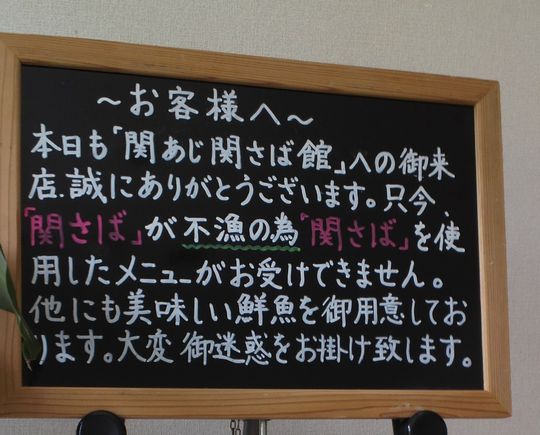 ～お客様へ～
本日も「関あじ関さば館」への御来
店、誠にありがとうございます。只今、
「関さば」が不漁の為「関さば」を使
用したメニューがお受けできません。
他にも美味しい鮮魚を御用意してお
ります。大変御迷惑をお掛け致します。